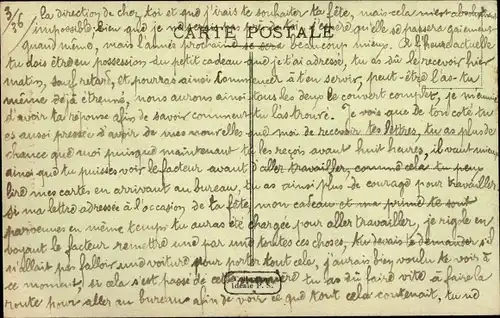 3/36 la direction de chez toi et que j'irais te souhaiter ta fête, mais cela m'est absolument
impossible, bien que je n'y serai pas j'espère qu'elle se passera gaiement
CARTE POSTALE
quand même, mais l'année prochaine ce sera beaucoup mieux. A l'heure actuelle
tu dois être en possession du petit cadeau que je t'ai adressé, tu as dû le recevoir hier
matin, sauf retard, et pourras ainsi commencer à t'en servir, peut-être l'as-tu
même déjà étrenné, nous aurons ainsi tous les deux le couvert complet, je m'ennuie
d'avoir ta réponse afin de savoir comment tu las trouvé. Je vois que de ton coté tu
es aussi pressée d'avoir de mes nouvelles que moi de recevoir tes lettres, tu as plus de
chance que moi puisque maintenant tu les reçois avant huit heures, il vaut mieux
ainsi que tu puisses voir le facteur avant d'aller travailler, comme cela tu peux
lire mes cartes en arrivant au bureau, tu as ainsi plus de courage pour travailler.
Si ma lettre adressée à l'occasion de ta fête, mon cadeau et ma prime te sont
parvenues en même temps tu auras été chargée pour aller travailler, je rigole en
voyant le facteur remettre une par une toutes ces choses, tu devais te demander s'il
n'allait pas falloir une voiture pour porter tout cela, j'aurais bien voulu te voir à
ce moment, si cela s'est passé de cette manière tu as dû faire vite à faire la
idéale P. S.
route pour aller au bureau afin de voir ce que tout cela contenait, tu nd